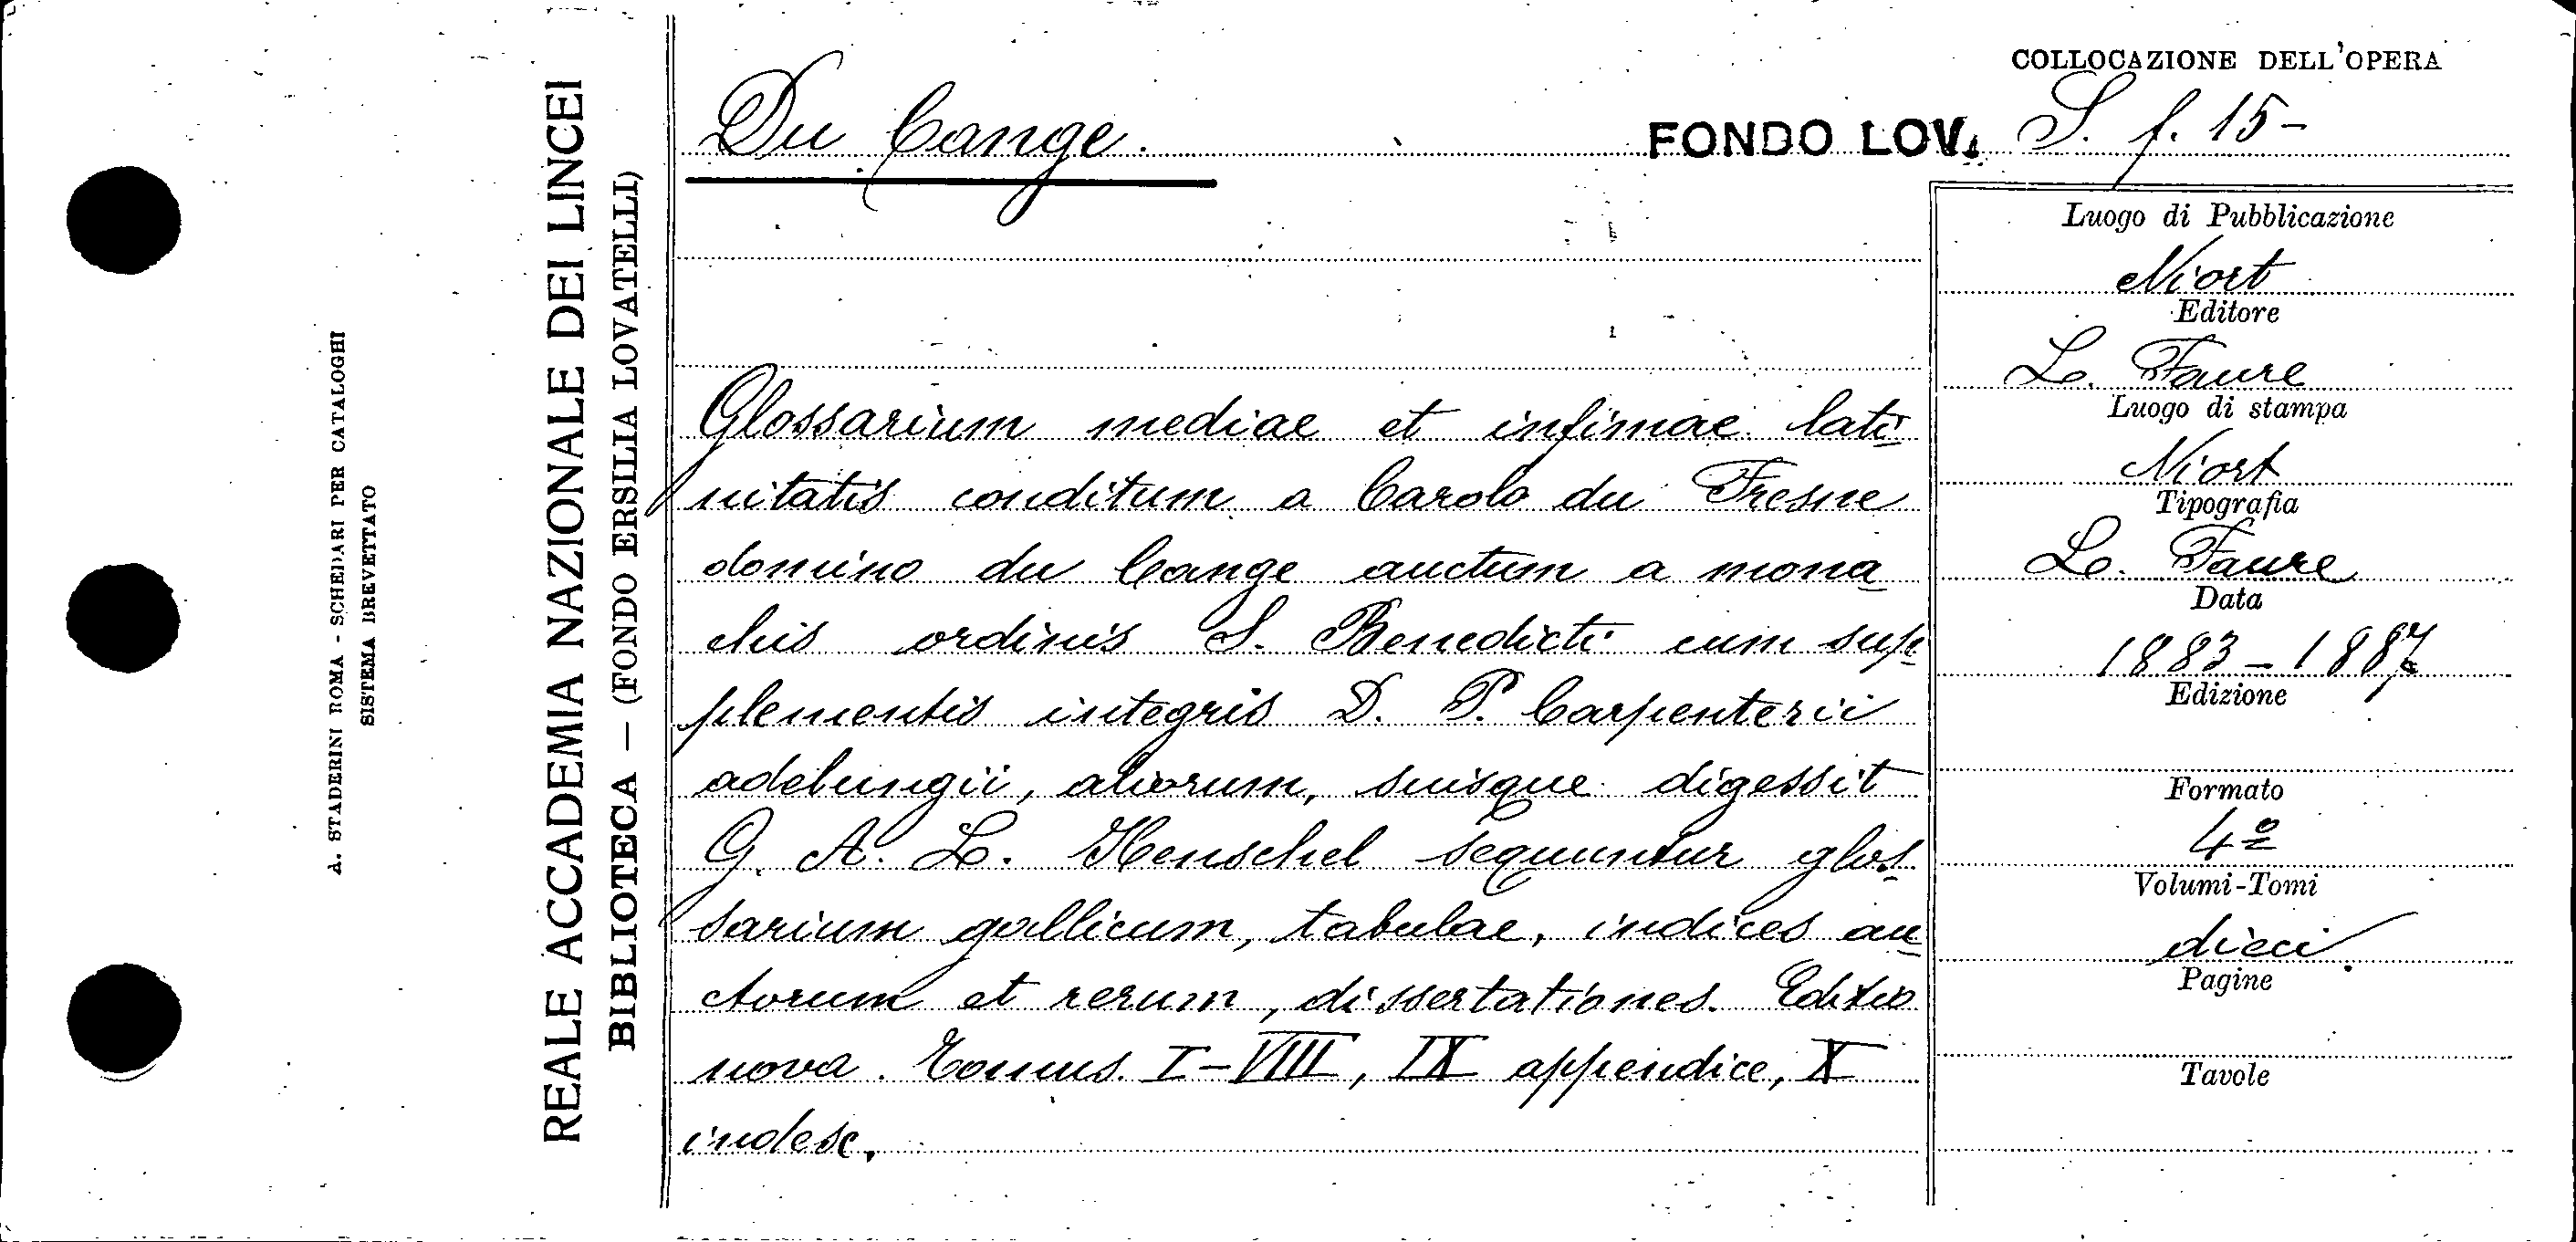 A. STADERINI ROMA - SCHEDARI PER CATALOGHI
SISTEMA BREVETTATO
REALE ACCADEMIA NAZIONALE DEI LINCEI
BIBLIOTECA — (FONDO ERSILIA LOVATELLI)
Du Cange.
Glossarium mediae et infimae lati
nitatis conditum a Carolo du Fresne
domino du Cange auctum a mona
chis ordinis S. Benedicti cum sup
plementis integris D. P. Carpenterii
adelungii, aliorum, suisque digessit
G. A. L. Henschel sequuntur glos
sarium gallicum, tabulae, indices au
ctorum et rerum, dissertationes. Editio
nova. Tomus. I-VIII, IX appendice, X
index.
COLLOCAZIONE DELL'OPERA
FONDO LOV. S. f. 15-
Luogo di Pubblicazione
Niort
Editore
L. Faure
Luogo di stampa
Niort
Tipografia
L. Faure
Data
1883-1887
Edizione
Formato
4º
Volumi-Tomi
dieci.
Pagine
Tavole